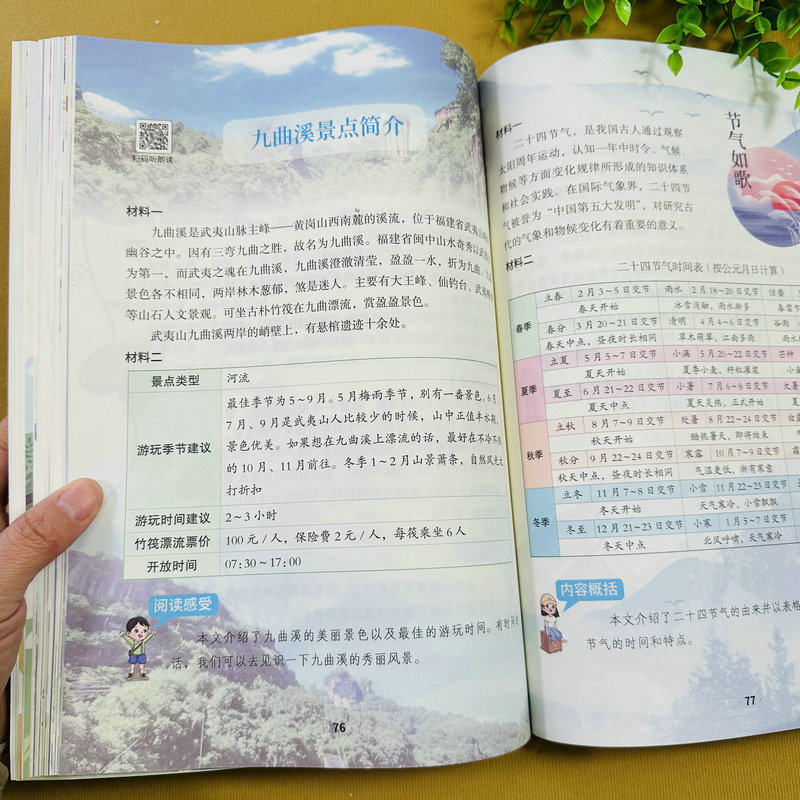 九曲溪景点简介
扫码听朗读
材料一
九曲溪是武夷山脉主峰——黄岗山西南麓的溪流，位于福建省武夷山
幽谷之中。因有三弯九曲之胜，故名为九曲溪。福建省闽中山水奇秀以武
为第一，而武夷之魂在九曲溪，九曲溪澄澈清莹，盈盈一水，折为九曲，
景色各不相同，两岸林木葱郁，煞是迷人。主要有大王峰、仙钓台、武夷
等山石人文景观。可坐古朴竹筏在九曲漂流，赏盈盈景色。
武夷山九曲溪两岸的峭壁上，有悬棺遗迹十余处。
材料二
景点类型 河流
游玩季节建议
最佳季节为5～9月。5月梅雨季节，别有一番景色。6月、
7月、9月是武夷山人比较少的时候，山中正值丰水期，
景色优美。如果想在九曲溪上漂流的话，最好在不冷不
的10月、11月前往。冬季1～2月山景萧条，自然风光大
打折扣
游玩时间建议 2～3小时
竹筏漂流票价 100元/人，保险费2元/人，每筏乘坐6人
开放时间 07:30～17:00
阅读感受
本文介绍了九曲溪的美丽景色以及最佳的游玩时间。有时间的
话，我们可以去见识一下九曲溪的秀丽风景。
76
节气如歌
材料一
二十四节气，是我国古人通过观察
太阳周年运动，认知一年中时令、气候、
物候等方面变化规律所形成的知识体系
和社会实践。在国际气象界，二十四节
气被誉为“中国第五大发明”，对研究古
代的气象和物候变化有着重要的意义。
材料二
二十四节气时间表（按公元月日计算）
春季
立春 2月3～5日交节 雨水 2月18～20日交节 惊蛰
春天开始 冰雪消融、雨水渐多 春雷
春分 3月20～21日交节 清明 4月4～6日交节 谷雨
春天中点，昼夜时长相同 草木萌芽，江南多雨 雨水
夏季
立夏 5月5～7日交节 小满 5月20～22日交节 芒种
夏天开始 夏季小麦，籽粒灌浆
夏至 6月21～22日交节 小暑 7月6～8日交节 大暑
夏天中点 夏天炎热，正式开始
秋季
立秋 8月7～9日交节 处暑 8月22～24日交节 白露
秋天开始 酷热暑天，即将结束 天气
秋分 9月22～24日交节 寒露 10月7～9日交节
秋天中点，昼夜时长相同 气温更低，渐有寒意
冬季
立冬 11月7～8日交节 小雪 11月22～23日交节
冬天开始 天气寒冷，小雪飘飘
冬至 12月21～23日交节 小寒 1月5～7日交节
冬天中点 北风呼啸，天气寒冷
内容概括
本文介绍了二十四节气的由来并以表格
节气的时间和特点。
77